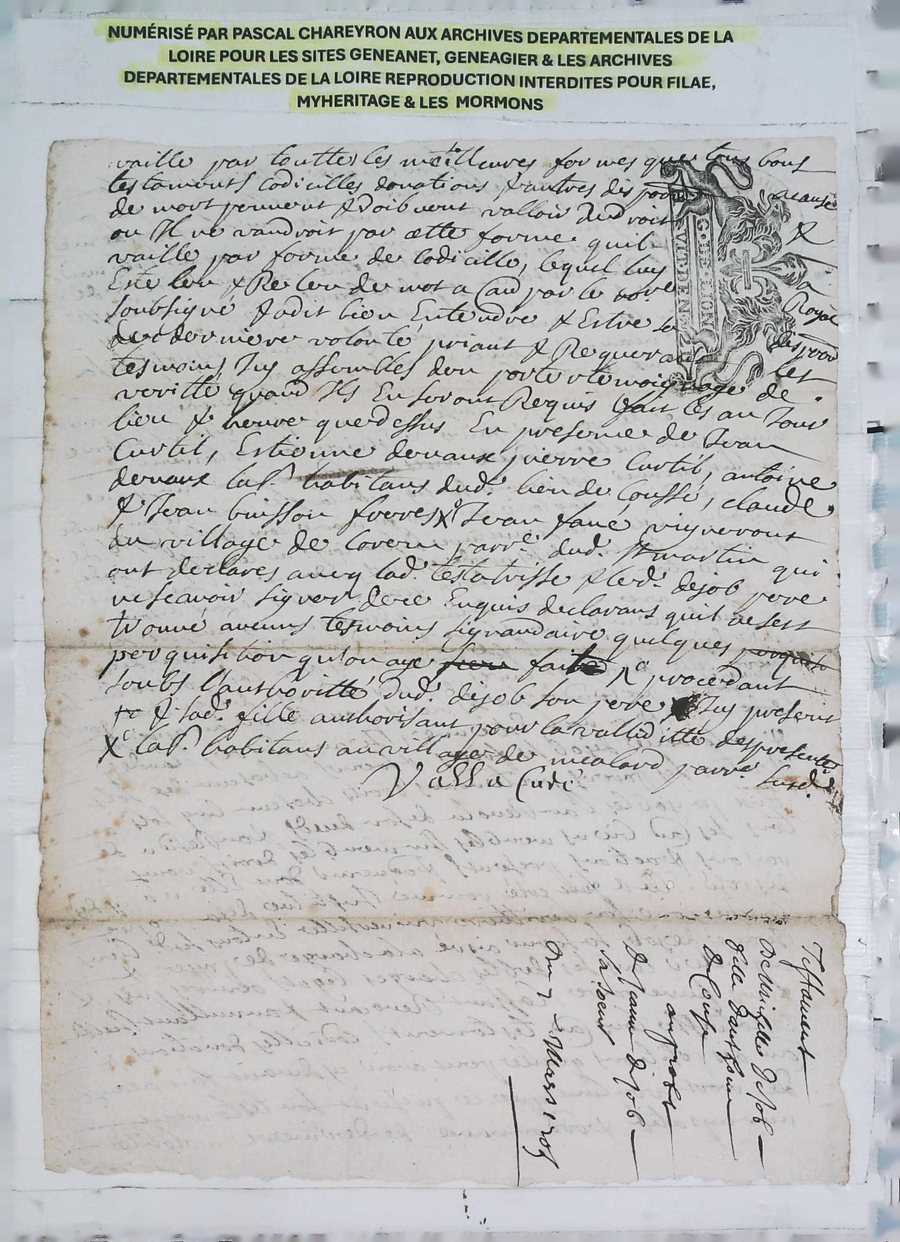 NUMÉRISÉ PAR PASCAL CHAREYRON AUX ARCHIVES DEPARTEMENTALES DE LA
LOIRE POUR LES SITES GENEANET, GENEAGIER & LES ARCHIVES
DEPARTEMENTALES DE LA LOIRE REPRODUCTION INTERDITES POUR FILAE,
MYHERITAGE & LES MORMONS
vaille par touttes les meilleures formes que tous bons
testaments codicilles donations & autres dispo
de mort peuvent & doibvent valloir de droit
ou Il ne vaudroit par cette forme quil
vaille par forme de codicille, lequel luy
Este leu & Releu de mot a par le
soubsigné & a dit bien Entendre & Estre sa
derniere volonté priant & Requerant les
tesmoins Icy assembles den porter tesmoignage de
verité quand Ils En seront Requis fait les an Jour
lieu & heure que dessus En presence de Jean
Curtil, Estienne devaux pierre Curtil, antoine
devaux habitans dud. lieu de Coussé, claude
& Jean buisson freres & Jean faué vigneront
du village de parre. dud. St martin qui
ont declares avecq lad. testatrisse & led. dejob pere
ne scavoir signer de ce Enquis declarans quil ne sest
trouvé aucuns tesmoins quelques
perquisition quon aye faite procedant
soubs lauthorité dud. dejob son pere Icy present
& lad. fille authorisant pour la validitté des presentes
habitans au village de parre susd.
Valla Curé
G. DE LION
VI DEN
Testament
de fille dejob
fille
de
au profit
de Jeanne dejob
sa soeur
Du Mars